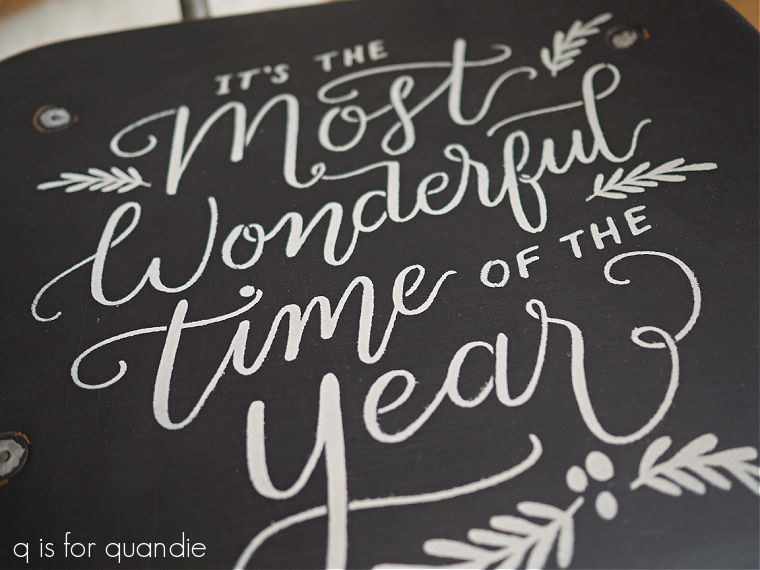 IT'S THE
Most
Wonderful
time OF THE
Year
q is for quandie